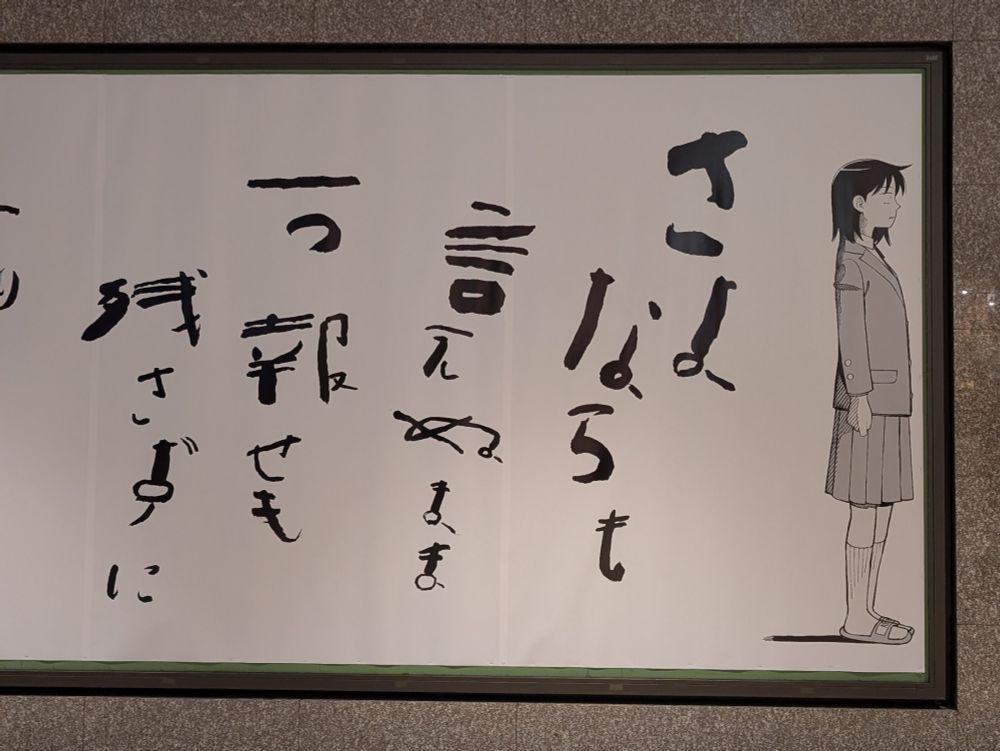 さよ
ならも
言えぬまま
一つ報せも
残さずに